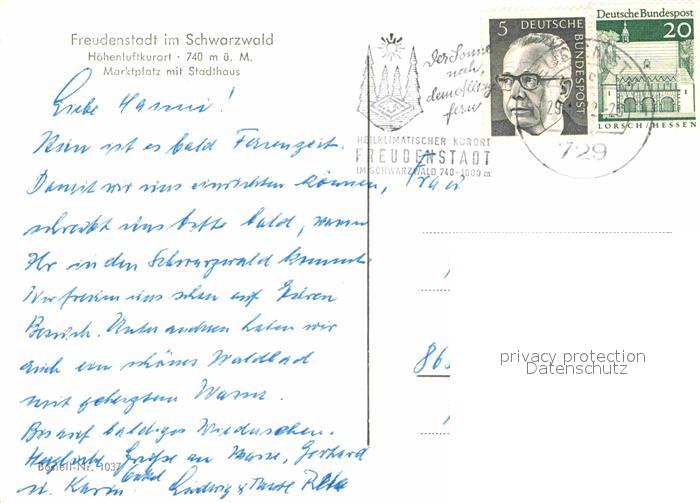 Freudenstadt im Schwarzwald
Höhenluftkurort · 740 m ü. M.
Marktplatz mit Stadthaus
Liebe Hanni!
Nun ist es bald Ferienzeit.
Damit wir uns einrichten können,
schreibt uns bitte bald, wann
Ihr in den Schwarzwald kommt.
Wir freuen uns schon auf Euren
Besuch. Unter anderem haben wir
auch ein schönes Waldbad
mit geheiztem Wasser.
Bis auf baldiges Wiedersehen.
Herzliche Grüße an Gerhard
u. Karin Onkel Ludwig u. Tante
Bestell-Nr. 1037
Der Sonne
nah,
dem Alltag
fern
HEILKLIMATISCHER KURORT
FREUDENSTADT
IM SCHWARZWALD 740-1000 m
5 DEUTSCHE BUNDESPOST
Deutsche Bundespost
20
LORSCH/HESSEN
729
Frau
86
privacy protection
Datenschutz